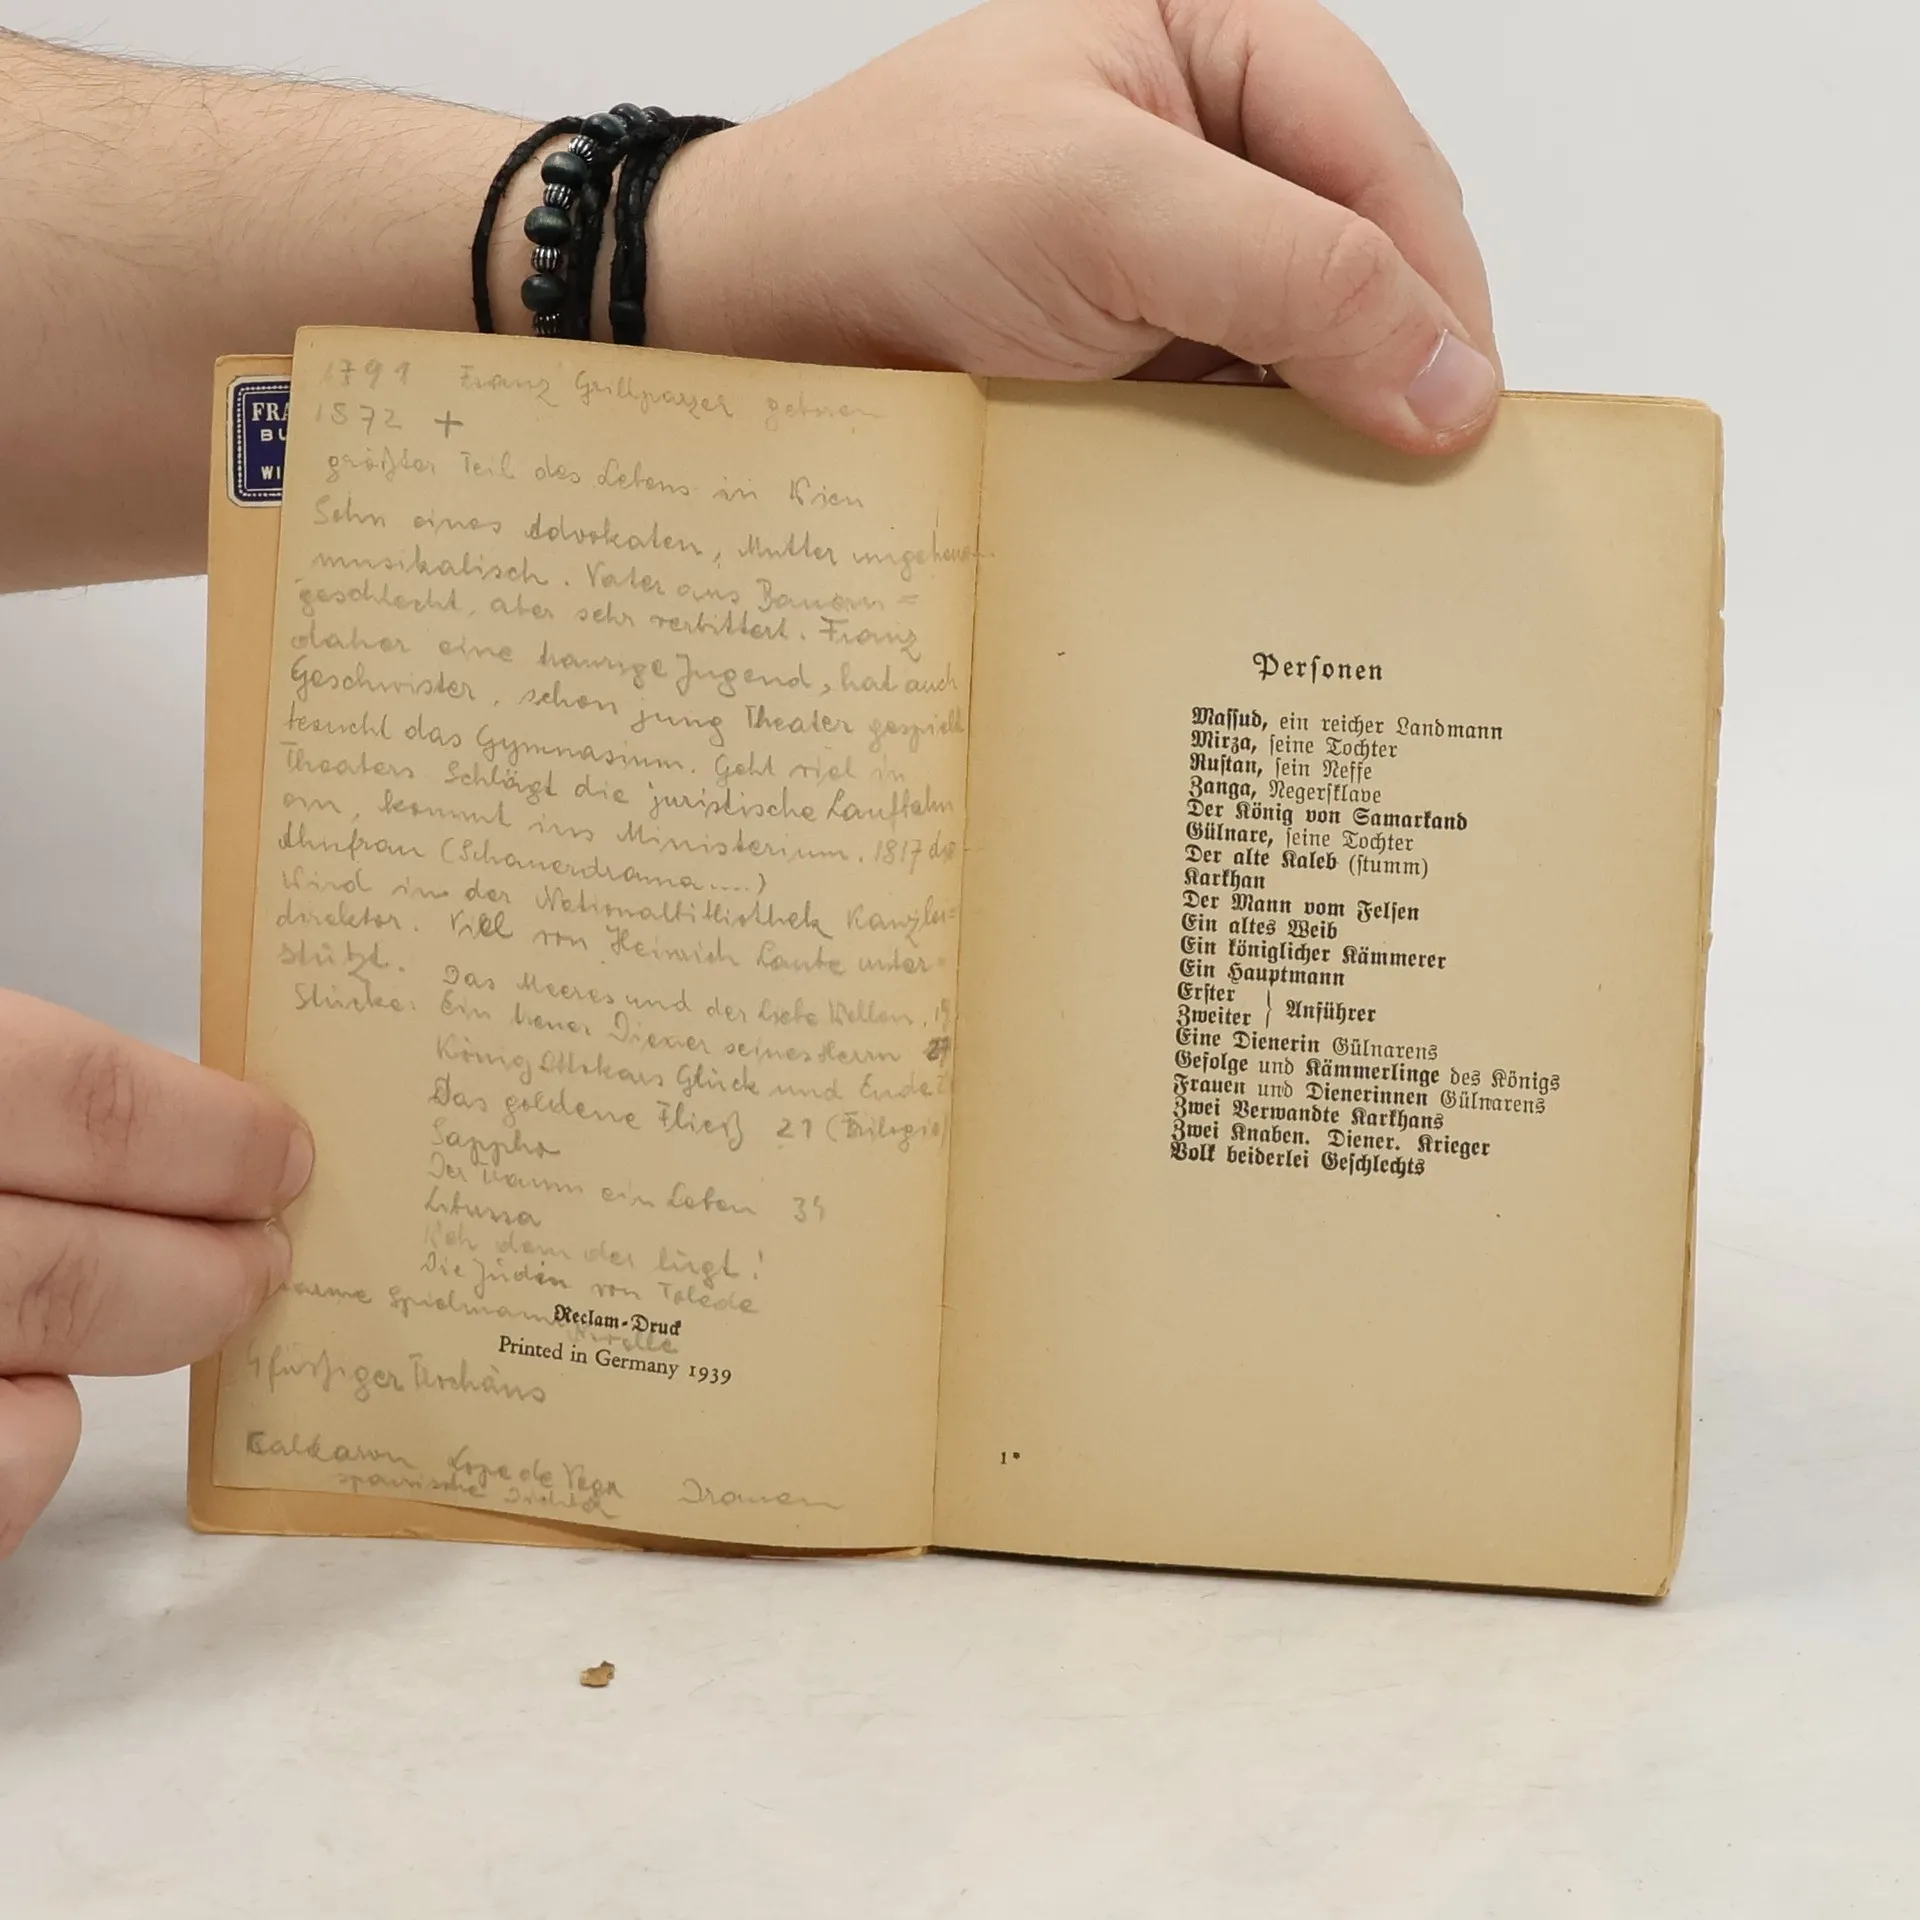 FRA
BU
WI
1791 Franz Grillparzer geboren
1872 +
größter Teil des Lebens in Wien
Sohn eines Advokaten, Mutter ungeheuer
musikalisch. Vater aus Bauern=
geschlecht, aber sehr verbittert. Franz
daher eine traurige Jugend, hat auch
Geschwister, schon jung Theater gespielt
besucht das Gymnasium. Geht viel in
Theaters Schlägt die juristische Laufbahn
ein, kommt ins Ministerium. 1817 die
Ahnfrau (Schauerdrama....)
Wird in der Nationalbibliothek Kanzlei=
direktor. Viel von Heinrich Laube unter=
stützt.
Stücke: Das Meeres und der Liebe Wellen.
Ein treuer Diener seines Herrn 27
König Ottokars Glück und Ende
Das goldene Fließ 21 (Trilogie)
Sappho
Der Traum ein Leben 34
Libussa
Weh dem der lügt!
Die Jüdin von Toledo
arme Spielmann Novelle
Reclam-Druck
Printed in Germany 1939
füßiger Trochäus
Calderon Lope de Vega Dramen
spanische Dichter
Personen
Massud, ein reicher Landmann
Mirza, seine Tochter
Rustan, sein Neffe
Zanga, Negersklave
Der König von Samarkand
Gülnare, seine Tochter
Der alte Kaleb (stumm)
Karkhan
Der Mann vom Felsen
Ein altes Weib
Ein königlicher Kämmerer
Ein Hauptmann
Erster
Zweiter } Anführer
Eine Dienerin Gülnarens
Gefolge und Kämmerlinge des Königs
Frauen und Dienerinnen Gülnarens
Zwei Verwandte Karkhans
Zwei Knaben. Diener. Krieger
Volk beiderlei Geschlechts
1*